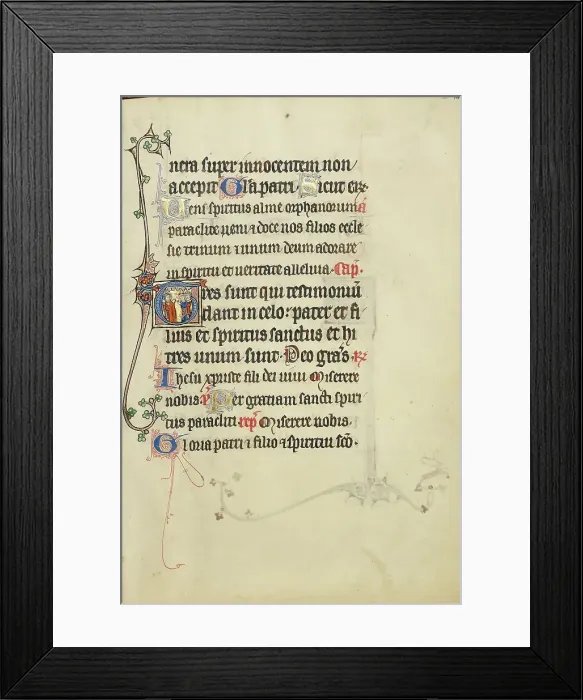 nera super innocentem non
accepit Gła patri Sicut er̃
Ueni spiritus alme orphanorum a
paraclite veni ⁊ doce nos filios eccle
sie trinum ⁊ unum deum adorare
in spiritu et veritate alleluia. Cap̃.
Tres sunt qui testimoniũ
dant in celo: pater et fi
lius et spiritus sanctus et hi
tres unum sunt. Deo gr̃as. R̃
Ihesu xpriste fili dei vivi Miserere
nobis. Ṽ Per gratiam sancti spiri
tus paracliti rep̃ Miserere nobis.
Gloria patri ⁊ filio ⁊ spiritui scõ.